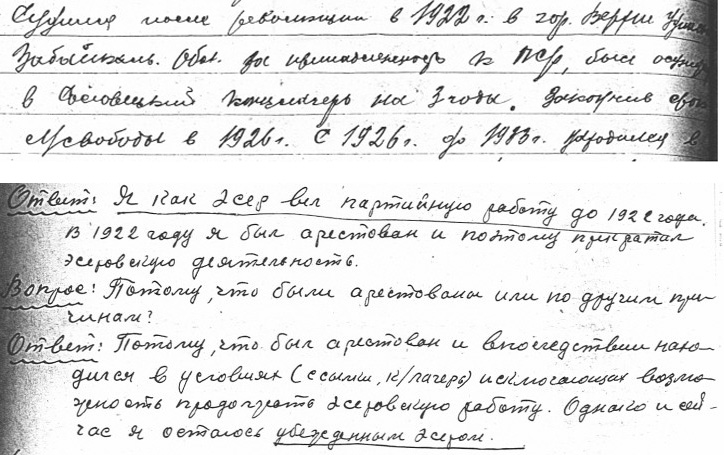 Судился после революции в 1922 г. в гор. Верхне Удинск
Забайкаль. Обл. за принадлежность к ПСР, был осужд
в Соловецкий концлагерь на 3 года. Закончив срок
лишсвободы в 1926 г. С 1926 г. до 1933 г. находился в
Ответ: Я как эсер вел партийную работу до 1922 года.
В 1922 году я был арестован и поэтому прекратил
эсеровскую деятельность.
Вопрос: Потому, что были арестованы или по другим при-
чинам?
Ответ: Потому, что был арестован и впоследствии нахо-
дился в условиях (ссылки, к/лагеря) исключающих возмо-
жность продолжать эсеровскую работу. Однако и сей-
час я остаюсь убежденным эсером.